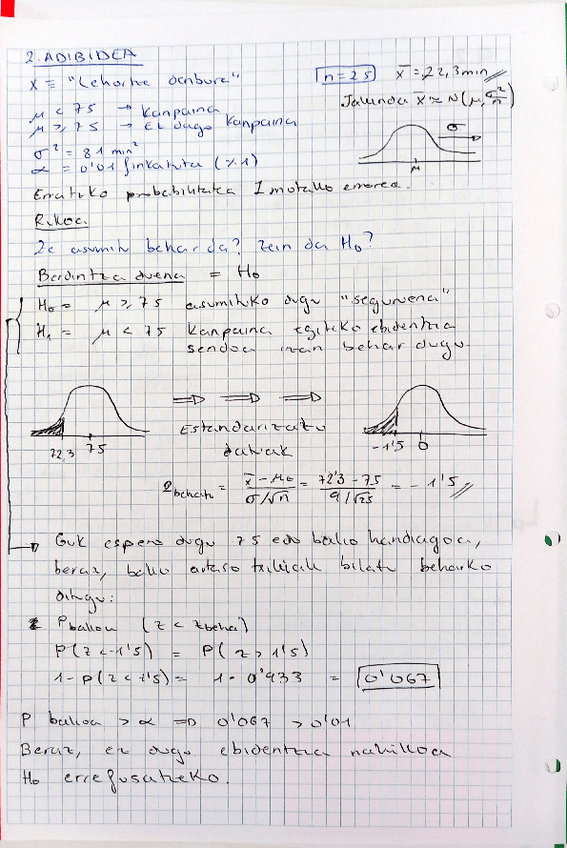 2. ADIBIDEA
X ≡ "Lehortze denbora"
n=25 x̄ = 72,3 min
Jakinda x̄ ≈ N(μ, σ²/n)
μ < 75 → Kanpaina
μ ≥ 75 → Ez dago Kanpaina
σ
μ
σ² = 81 min²
α = 0'01 finkatuta (%1)
Erratzeko probabilitatea I motako errorea.
Zc asumitu behar da? Zein da H₀?
Berdintza duena = H₀
H₀ = μ ≥ 75 asumituko dugu "segurena"
H₁ = μ < 75 Kanpaina egiteko ebidentzia
sendoa izan behar dugu.
72,3 75
Estandarizatu
datuak
-1'5 0
Z behatu = x̄ - μ₀ / σ/√n = 72'3 - 75 / 9/√25 = -1'5
Guk espero dugu 75 edo balio handiagoa,
beraz, balio arraro txikiak bilatu beharko
ditugu:
P balioa (z < z beha)
P(z < -1'5) = P(z > 1'5)
1 - P(z < 1'5) = 1 - 0'933 = 0'067
P balioa > α ⇒ 0'067 > 0'01
Beraz, ez dugu ebidentzia nahikoa
H₀ errefusatzeko.